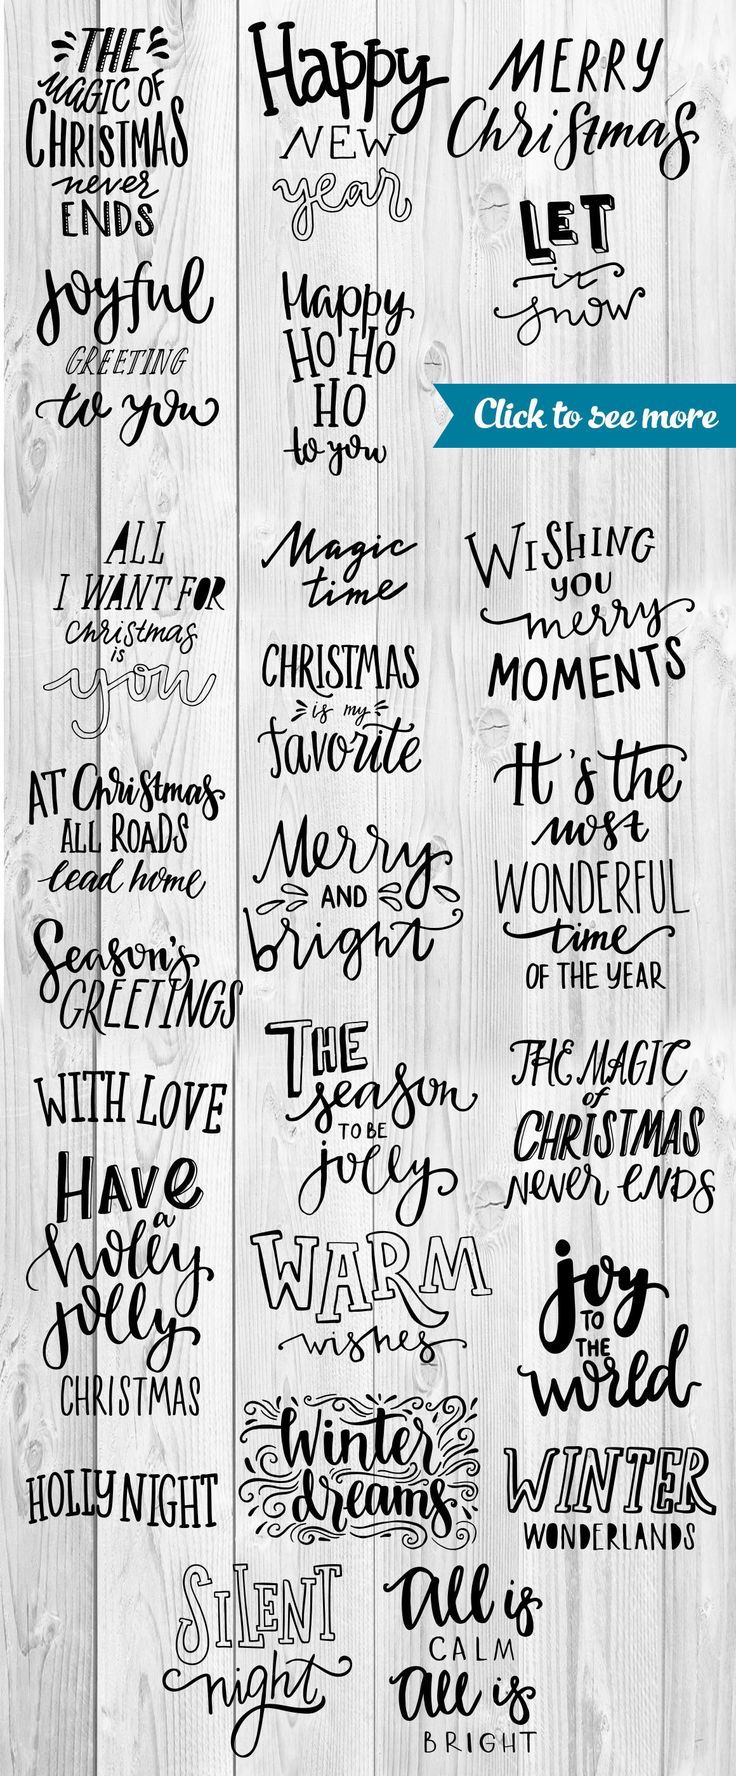 THE
MAGIC OF
CHRISTMAS
never
ENDS
Happy
NEW
year
MERRY
Christmas
LET
it
snow
Joyful
GREETING
to you
Happy
HO HO
HO
to you
Click to see more
ALL
I WANT FOR
Christmas
is
you
Magic
time
WISHING
YOU
merry
MOMENTS
CHRISTMAS
is my
favorite
AT Christmas
ALL ROADS
lead home
Merry
AND
bright
It's the
most
WONDERFUL
time
OF THE YEAR
Season's
GREETINGS
THE
season
TO BE
jolly
THE MAGIC
of
CHRISTMAS
NEVER ENDS
WITH LOVE
HAVE
a
holly
jolly
CHRISTMAS
WARM
wishes
joy
TO
THE
world
HOLLY NIGHT
Winter
dreams
WINTER
WONDERLANDS
SILENT
night
All is
CALM
All is
BRIGHT